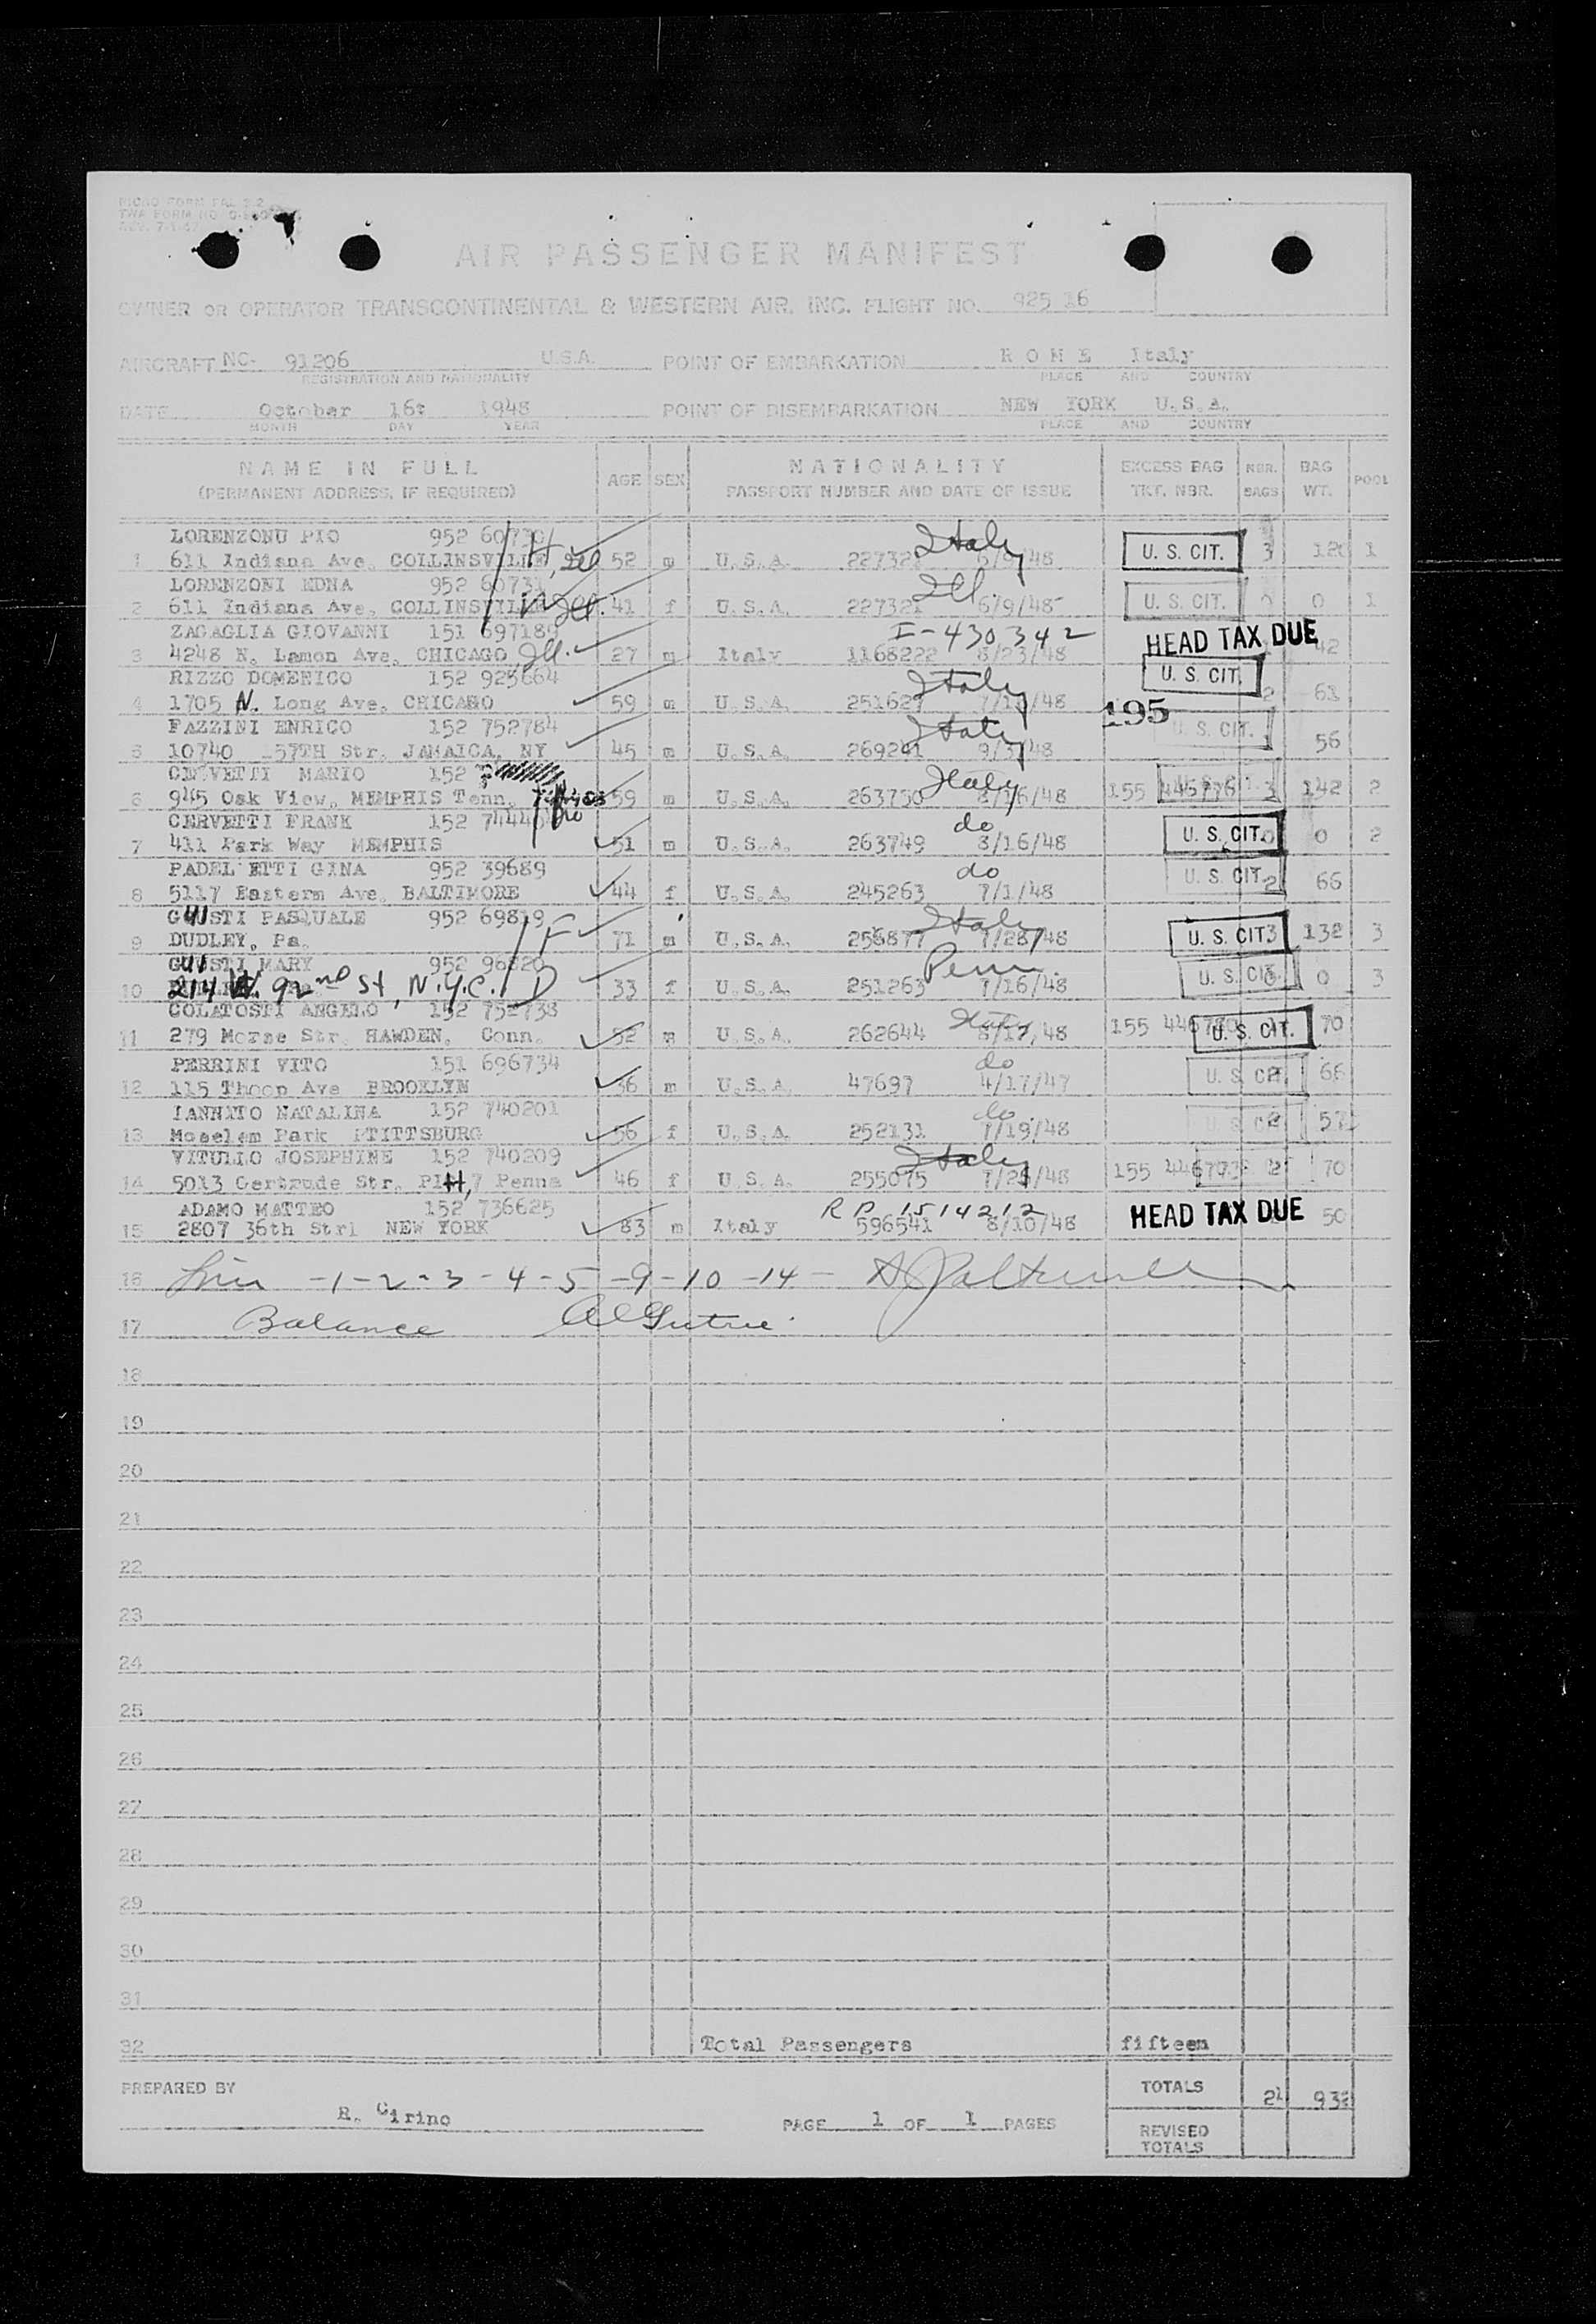 AIR PASSENGER MANIFEST
OWNER OR OPERATOR TRANSCONTINENTAL & WESTERN AIR, INC. FLIGHT NO. 925 16
AIRCRAFT NC- 91206 U.S.A. POINT OF EMBARKATION R O M E Italy
REGISTRATION AND NATIONALITY PLACE AND COUNTRY
DATE October 16t 1948 POINT OF DISEMBARKATION NEW YORK U.S.A.
MONTH DAY YEAR PLACE AND COUNTRY
NAME IN FULL AGE SEX NATIONALITY EXCESS BAG NBR. BAG POOL
(PERMANENT ADDRESS, IF REQUIRED) PASSPORT NUMBER AND DATE OF ISSUE TKT. NBR. BAGS WT.
LORENZONU PIO 952 60730 H Italy
1 611 Indiana Ave, COLLINSVILLE, Ill 52 m U.S.A. 6/9/48 U. S. CIT. 3 120 1
LORENZONI EDNA 952 60731 W Ill
2 611 Indiana Ave, COLLINSVILLE Ill. 41 f U.S.A. 227321 6/9/48 U. S. CIT. 0 0 1
ZAGAGLIA GIOVANNI 151 697189 I-430342
3 4248 N. Lamon Ave, CHICAGO Ill. 27 m Italy 1168222 8/23/48 HEAD TAX DUE 42
RIZZO DOMENICO 152 925664 Italy
4 1705 N. Long Ave, CHICAGO 59 m U.S.A. 251627 /48 U. S. CIT. 2 61
FAZZINI ENRICO 152 752784 Italy 195
5 10740 157TH Str. JAMAICA, NY 45 m U.S.A. 269241 9/3/48 U. S. CIT. 1 56
MARIO 152 Italy
6 945 Oak View, MEMPHIS Tenn. 59 m U.S.A. 263750 8/16/48 155 445776 U. S. CIT. 3 142 2
CERVETTI FRANK 152 do
7 411 Park Way MEMPHIS 51 m U.S.A. 263749 8/16/48 U. S. CIT. 0 0 2
PADEL ETTI GINA 952 39689 do
8 5117 Eastern Ave. BALTIMORE 44 f U.S.A. 245263 7/1/48 U. S. CIT. 2 66
GIUSTI PASQUALE 952 69819 F Italy
9 DUDLEY, Pa. 71 m U.S.A. 256877 7/28/48 U. S. CIT. 3 132 3
GIUSTI MARY 952 D Penn.
10 214 W. 92nd St, N.Y.C. 33 f U.S.A. 251263 7/16/48 U. S. CIT. 0 3
COLATOSTI ANGELO 152 752738 Italy
11 279 Morse Str. HAMDEN, Conn. 52 m U.S.A. 262644 8/17/48 155 U. S. CIT. 70
PERRINI VITO 151 696734 do
12 115 Thoop Ave BROOKLYN 36 m U.S.A. 47697 4/17/47 U. S. CIT. 2 66
IANNITO NATALINA 152 740201 do
13 Moselem Park PTITTSBURG 56 f U.S.A. 252131 7/19/48 U. S. CIT. 2
VITULLO JOSEPHINE 152 740209 Italy
14 5013 Gertrude Str. PITT, 7 Penna 46 f U.S.A. 255075 /48 155 2 70
ADAMO MATTEO 152 736625 R P 1514212
15 2807 36th Strl NEW YORK 63 m Italy 596541 8/10/48 HEAD TAX DUE 50
16 -1-2-3-4-5-9-10-14-
17 Balance
18
19
20
21
22
23
24
25
26
27
28
29
30
31
32 Total Passengers fifteen
PREPARED BY R. Cirino TOTALS 24 932
PAGE 1 OF 1 PAGES REVISED TOTALS